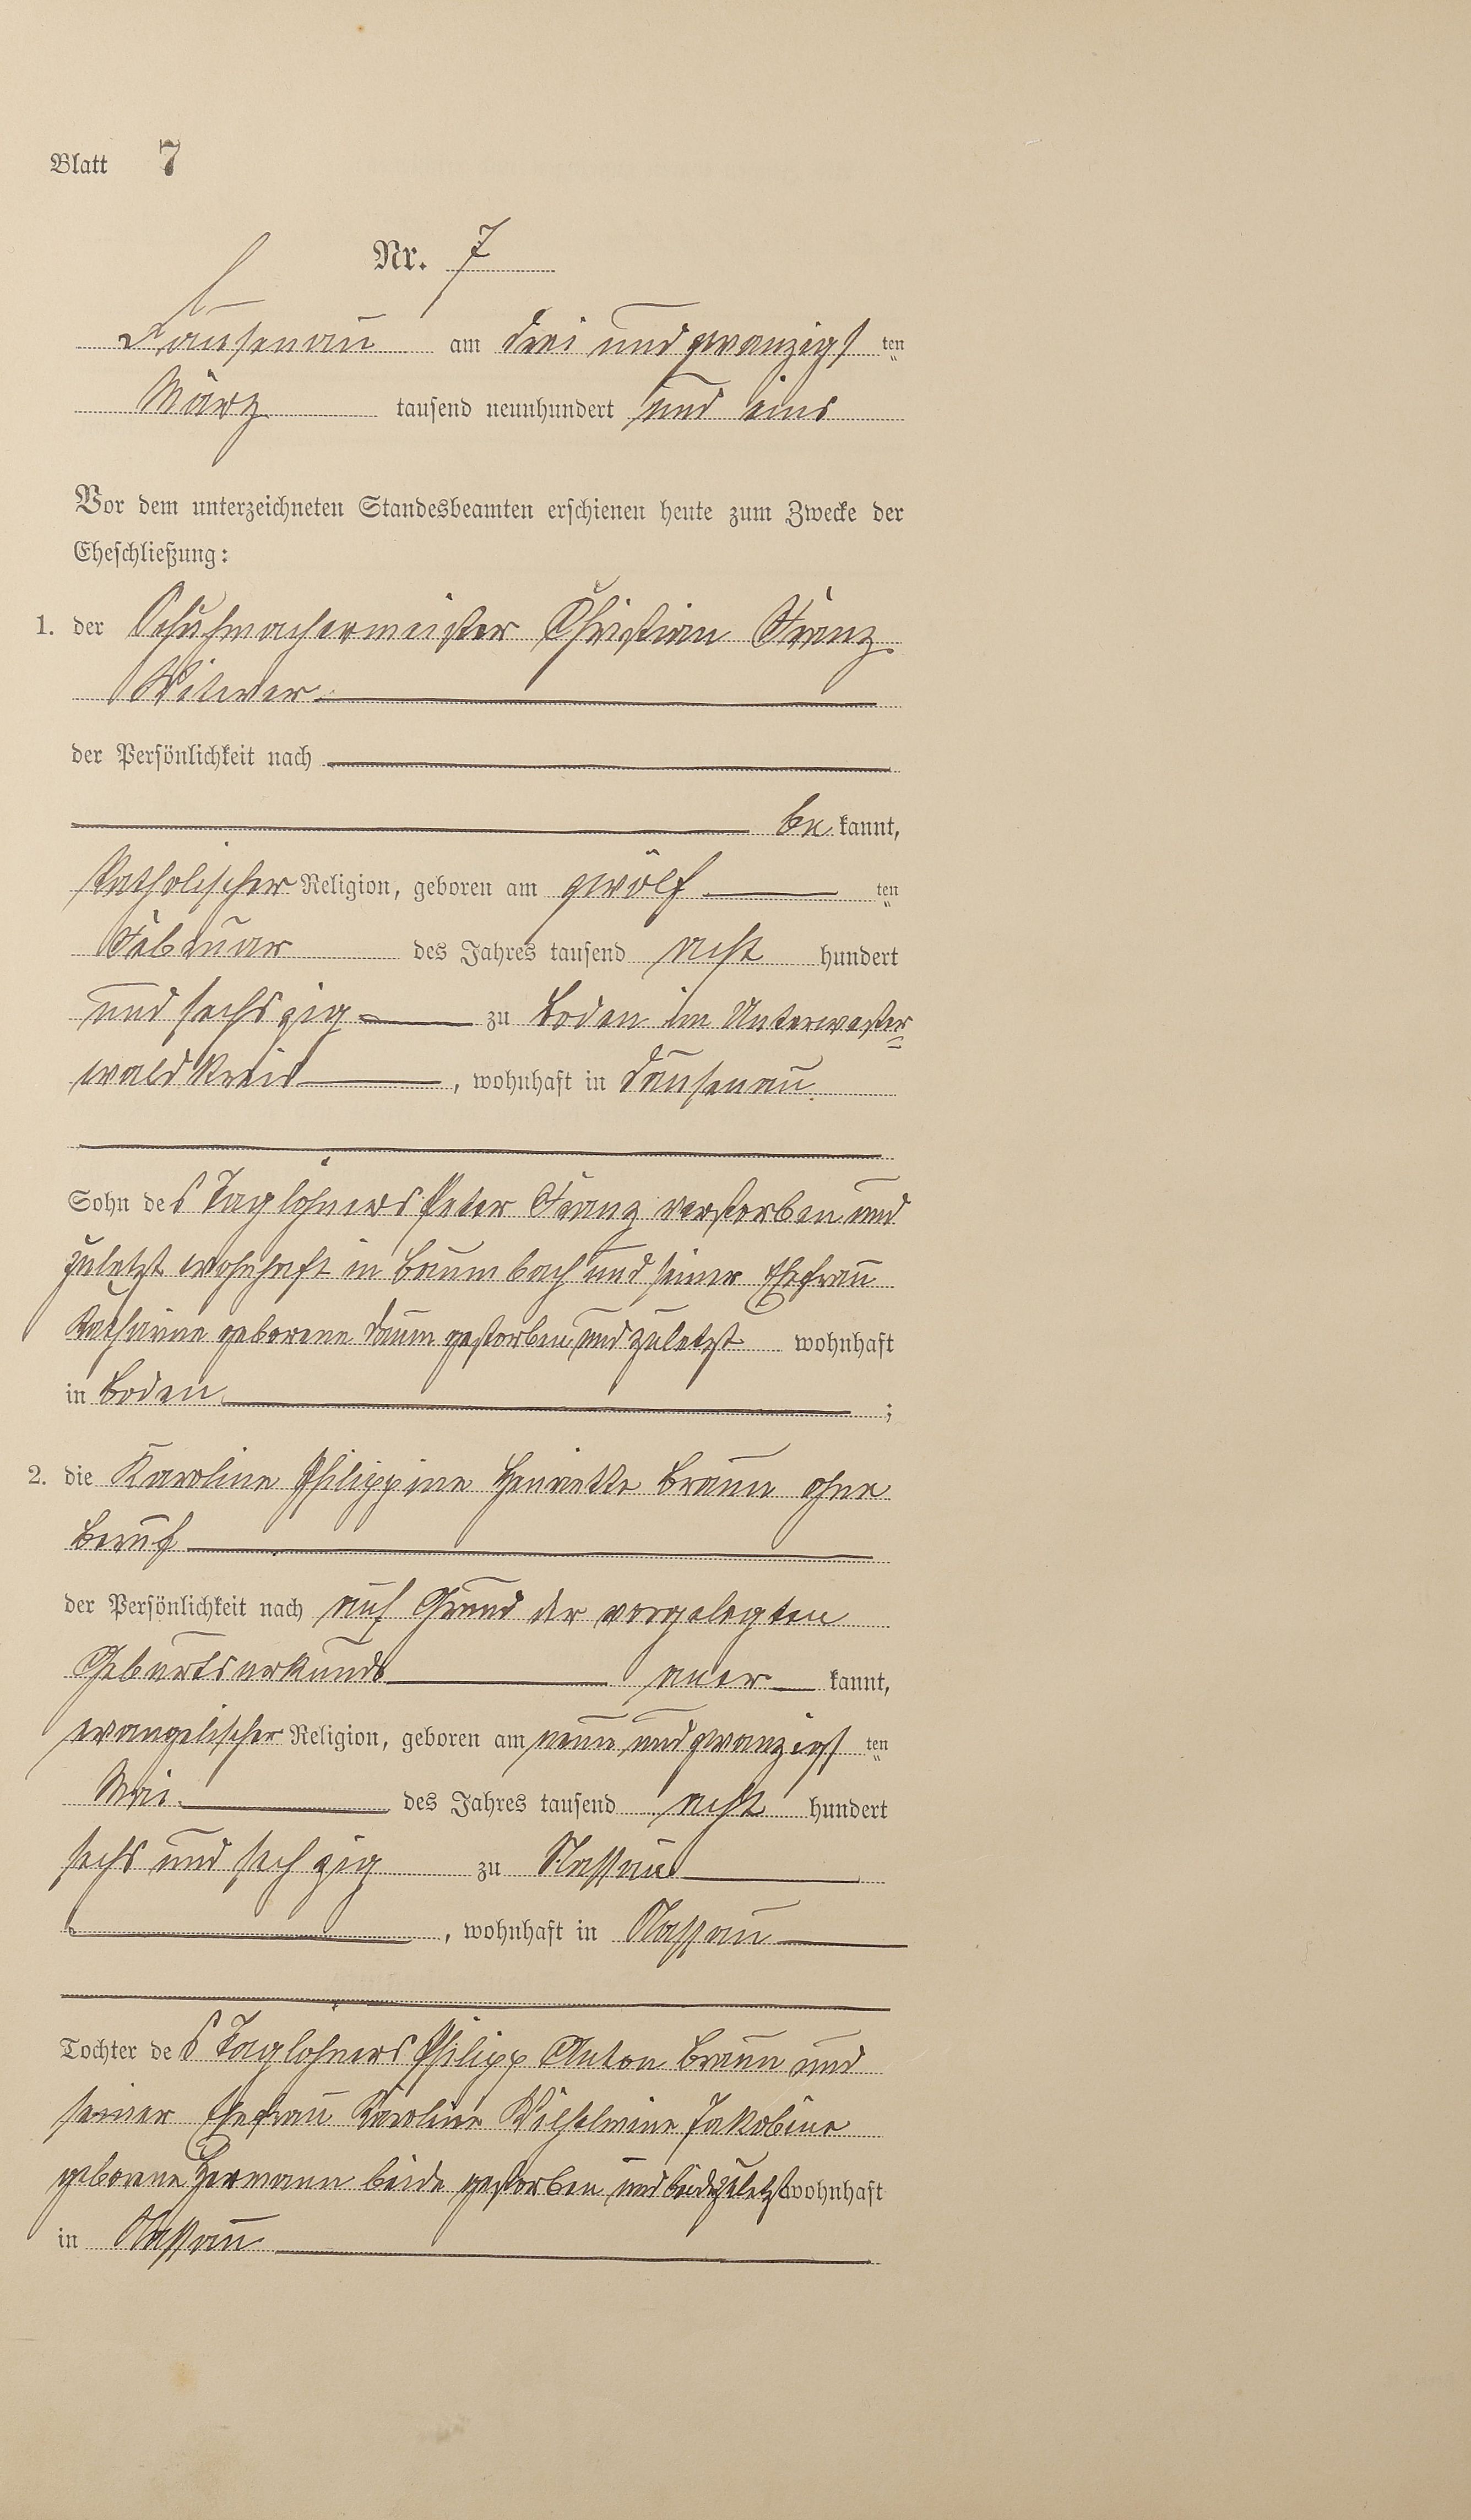 Blatt 7
Nr. 7
Dausenau am drei und zwanzigsten
März tausend neunhundert und eins
Vor dem unterzeichneten Standesbeamten erschienen heute zum Zwecke der
Eheschließung:
1. der Schuhmachermeister Christian Franz
Witwer
der Persönlichkeit nach
bekannt,
katholischer Religion, geboren am zwölften
Februar des Jahres tausend acht hundert
und sechszig zu Boden im Unterwester=
waldkreis, wohnhaft in Dausenau
Sohn des Taglöhners Peter Franz verstorben und
zuletzt wohnhaft in Baumbach und seiner Ehefrau
Katharine geborene gestorben und zuletzt wohnhaft
in Boden;
2. die Karoline Philippine Henriette Braun ohne
Beruf
der Persönlichkeit nach auf Grund der vorgelegten
Geburtsurkunde anerkannt,
evangelischer Religion, geboren am neun und zwanzigsten
Mai des Jahres tausend acht hundert
sechs und sechzig zu Nassau
, wohnhaft in Nassau
Tochter des Taglöhners Philipp Anton Braun und
seiner Ehefrau Karoline Wilhelmine Jakobine
geborene Hermann beide gestorben und beide zuletzt wohnhaft
in Nassau